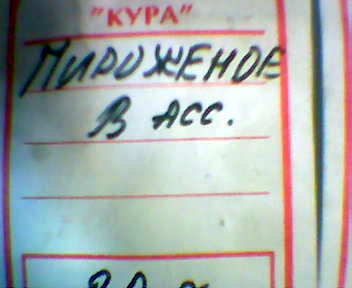 "КУРА"
МИРОЖЕНОЕ
В АСС.